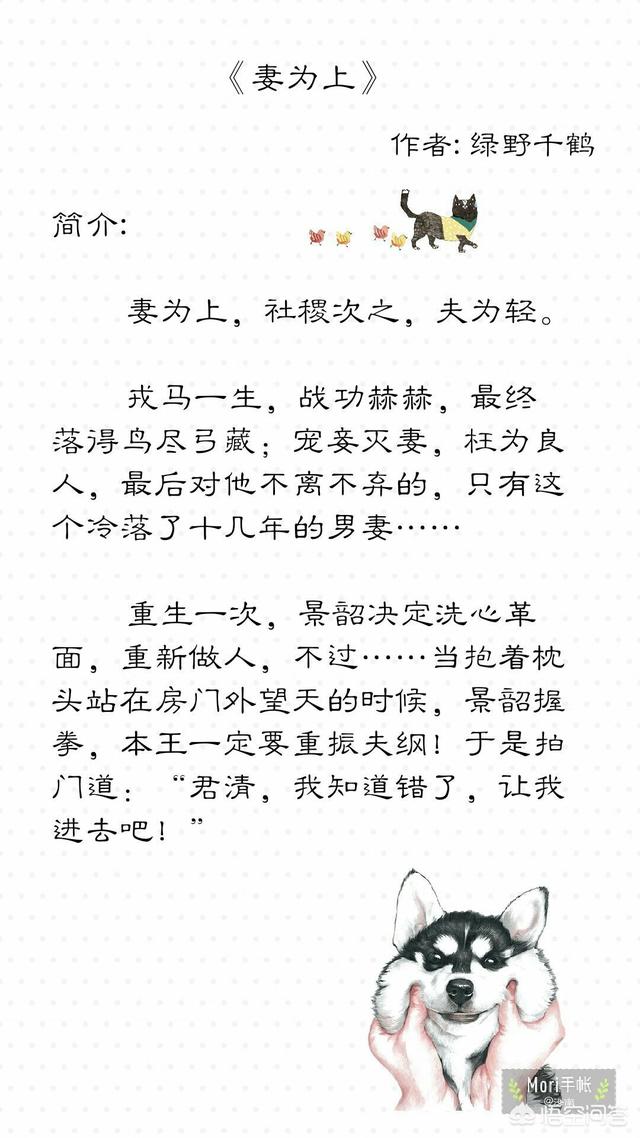 《妻为上》
作者: 绿野千鹤
简介:
妻为上，社稷次之，夫为轻。
戎马一生，战功赫赫，最终
落得鸟尽弓藏；宠妾灭妻，枉为良
人，最后对他不离不弃的，只有这
个冷落了十几年的男妻……
重生一次，景韶决定洗心革
面，重新做人，不过……当抱着枕
头站在房门外望天的时候，景韶握
拳，本王一定要重振夫纲！于是拍
门道：“君清，我知道错了，让我
进去吧！”
Mori手帐
悟空问答